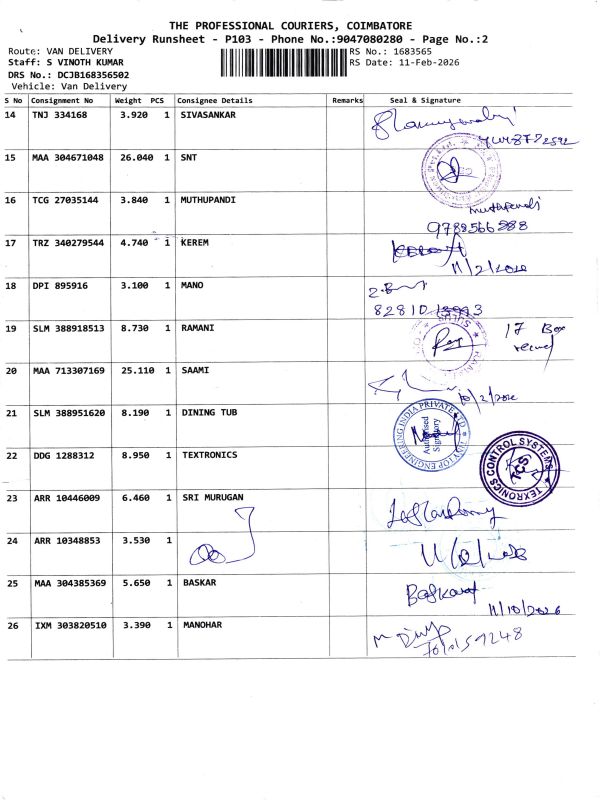 THE PROFESSIONAL COURIERS, COIMBATORE
Delivery Runsheet - P103 - Phone No.:9047080280 - Page No.:2
Route: VAN DELIVERY
RS No.: 1683565
Staff: S VINOTH KUMAR
RS Date: 11-Feb-2026
DRS No.: DCJB168356502
Vehicle: Van Delivery
S No Consignment No Weight PCS Consignee Details Remarks Seal & Signature
14 TNJ 334168 3.920 1 SIVASANKAR
15 MAA 304671048 26.040 1 SNT
16 TCG 27035144 3.840 1 MUTHUPANDI
9788566888
17 TRZ 340279544 4.740 1 KEREM
18 DPI 895916 3.100 1 MANO
19 SLM 388918513 8.730 1 RAMANI
17 Box
20 MAA 713307169 25.110 1 SAAMI
21 SLM 388951620 8.190 1 DINING TUB
Authorised
Signatory
22 DDG 1288312 8.950 1 TEXTRONICS
TEXRONICS CONTROL SYSTEMS
TCS
23 ARR 10446009 6.460 1 SRI MURUGAN
24 ARR 10348853 3.530 1
25 MAA 304385369 5.650 1 BASKAR
11/10/2026
26 IXM 303820510 3.390 1 MANOHAR